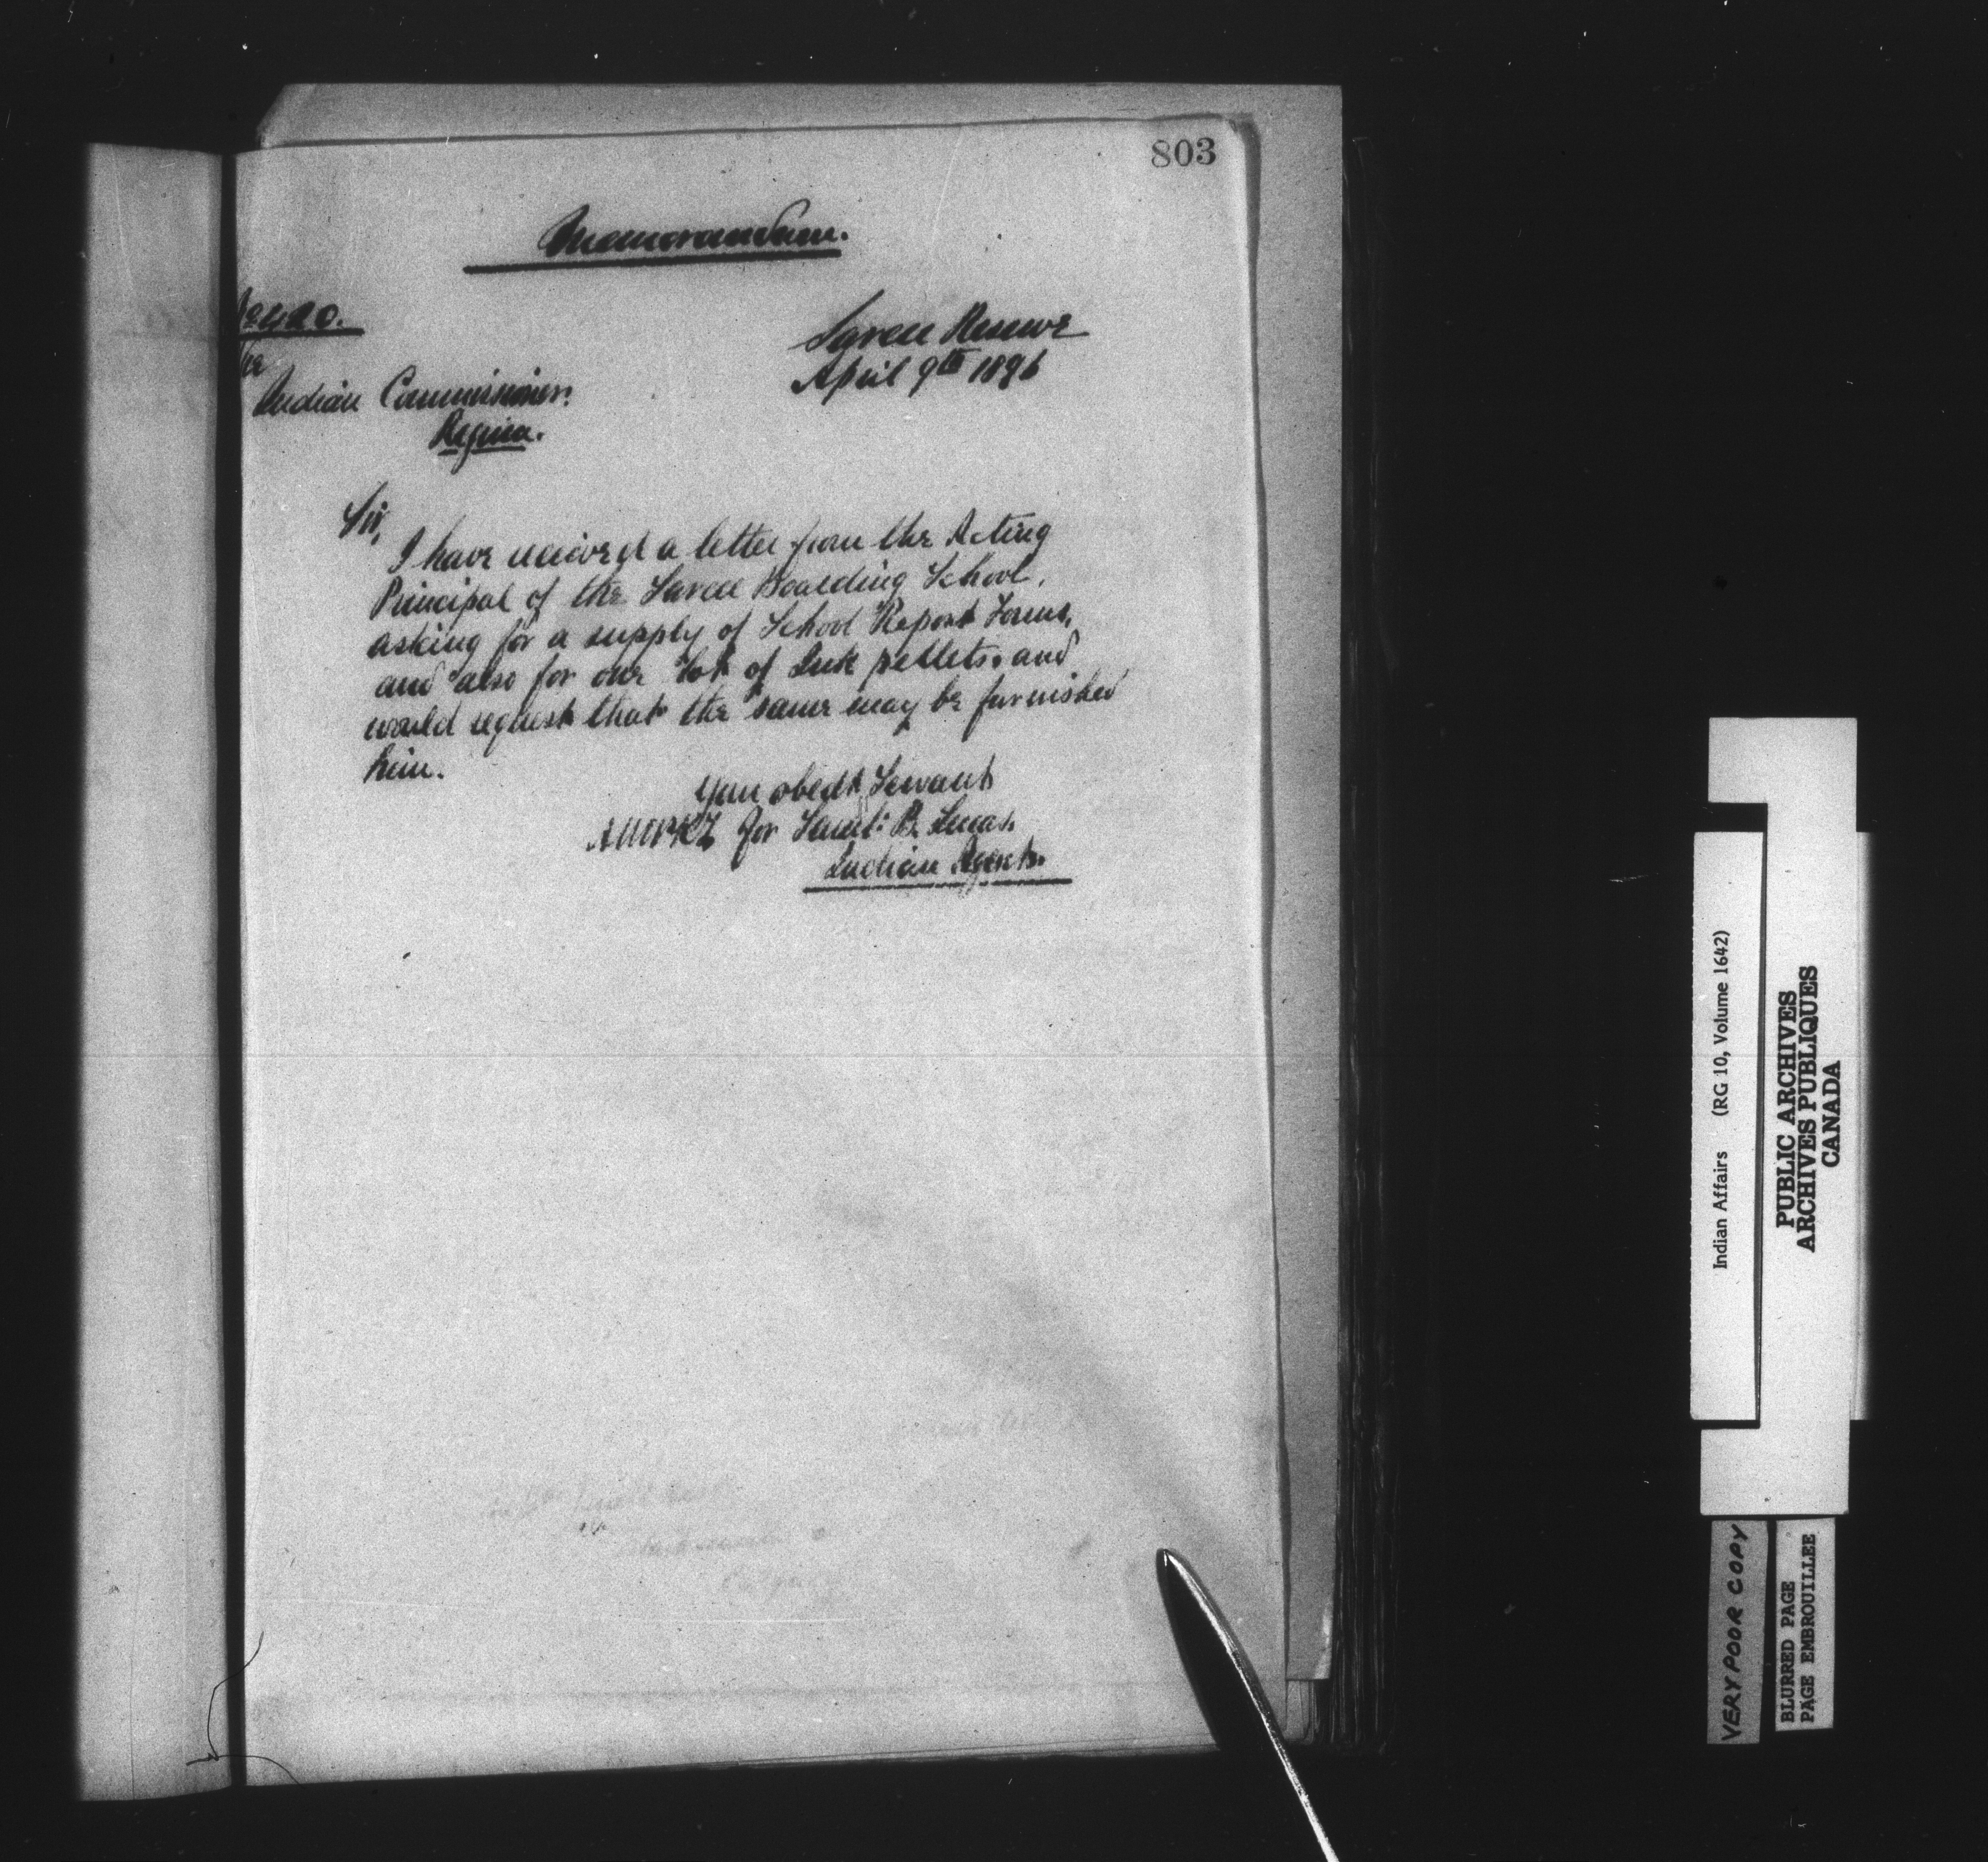 803
Memorandum.
No 420.
Sarcee Reserve
April 9th 1896
The
Indian Commissioner.
Regina.
Sir,
I have received a letter from the Acting
Principal of the Sarcee Boarding School,
asking for a supply of School Report Forms,
and also for one box of Ink pellets, and
would request that the same may be furnished
him.
Your obedt Servant
for Saml: B. Lucas.
Indian Agent.
Indian Affairs (RG 10, Volume 1642)
PUBLIC ARCHIVES
ARCHIVES PUBLIQUES
CANADA
VERY POOR COPY
BLURRED PAGE
PAGE EMBROUILLEE